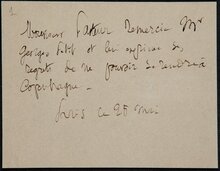 1
Monsieur Pasteur remercie Mr
Georges Petit et lui exprime ses
regrets de ne pouvoir se rendre à
Copenhague.
Paris ce 25 mai